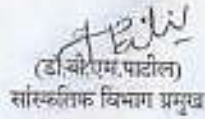 (डॉ.बी.एम.पाटील)
सांस्कृतिक विभाग प्रमुख